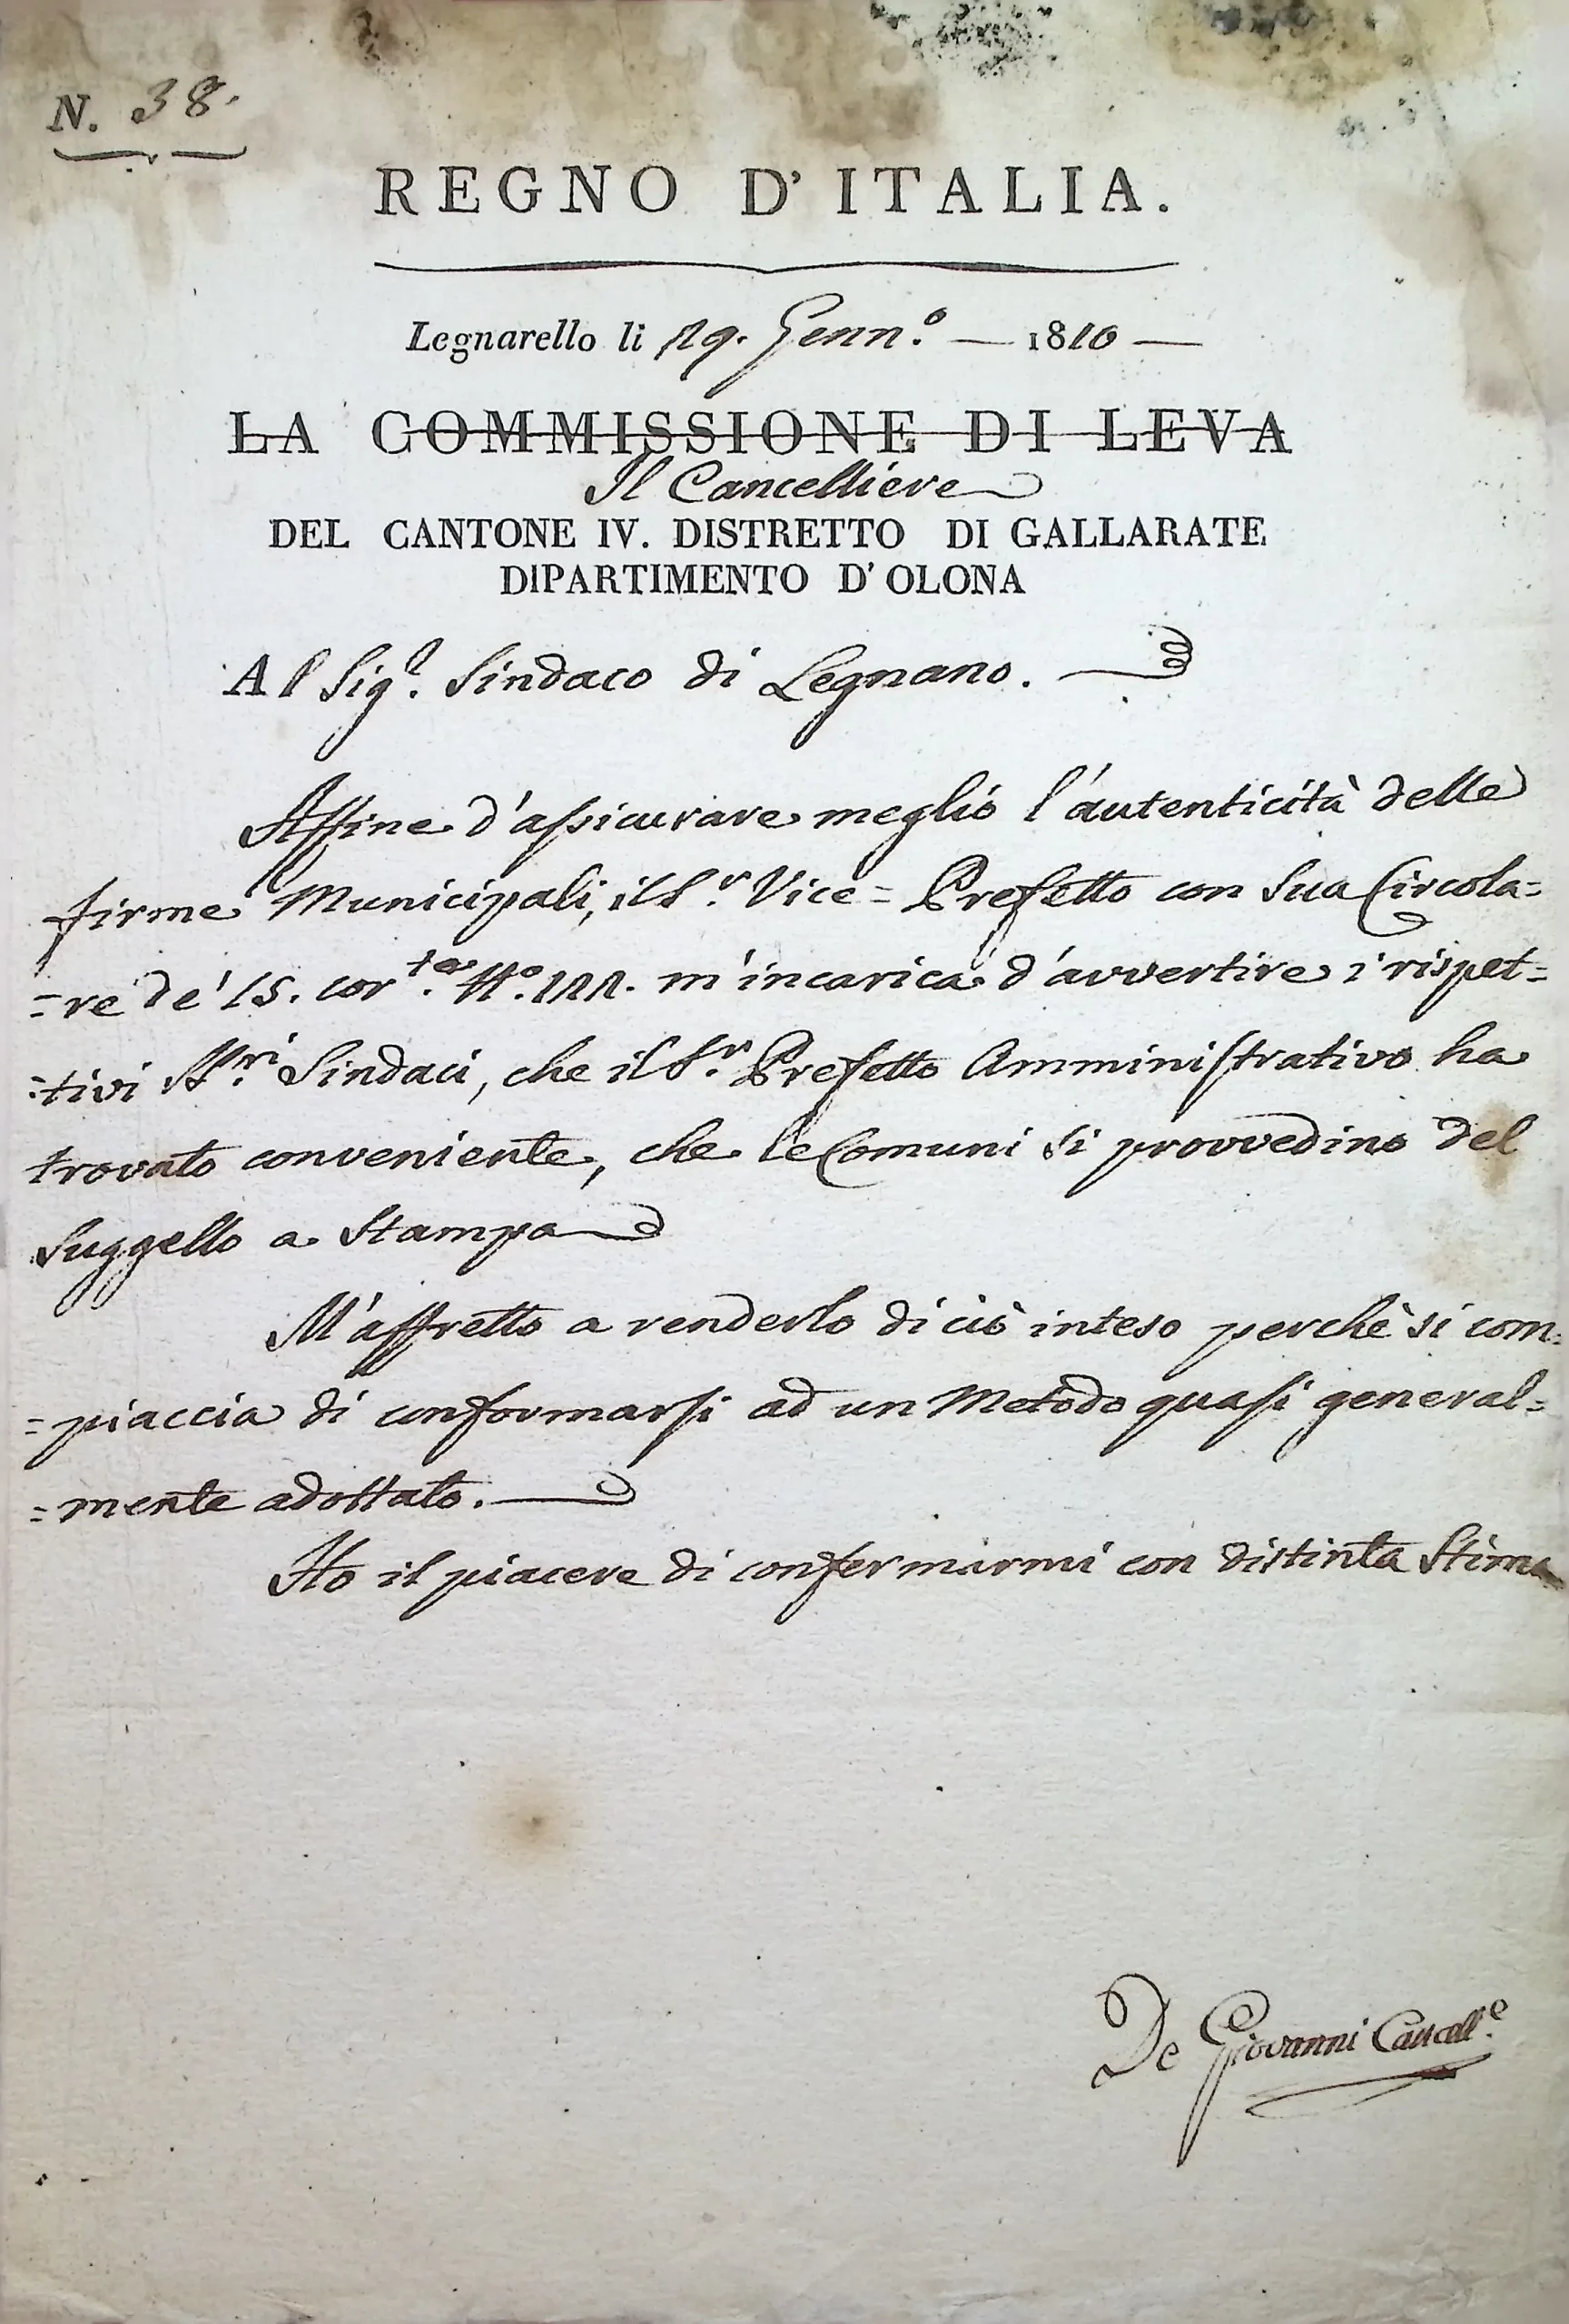 N. 38.
REGNO D'ITALIA.
Legnarello li 19. Genn.º — 1810 —
LA COMMISSIONE DI LEVA
Il Cancelliere
DEL CANTONE IV. DISTRETTO DI GALLARATE
DIPARTIMENTO D'OLONA
Al Sig.r Sindaco di Legnano.
Affine d'assicurare meglio l'autenticità delle
firme Municipali, il S.r Vice= Prefetto con sua Circola=
=re de' 15. cor.te N.º m'incarica d'avvertire i rispet=
=tivi SS.ri Sindaci, che il S.r Prefetto Amministrativo ha
trovato conveniente, che le Comuni si provvedino del
Suggello a Stampa
M'affretto a renderlo di ciò inteso perchè si com=
=piaccia di conformarsi ad un Metodo quasi general=
=mente adottato.
Ho il piacere di confermarmi con distinta Stima
De Giovanni Cancell.e